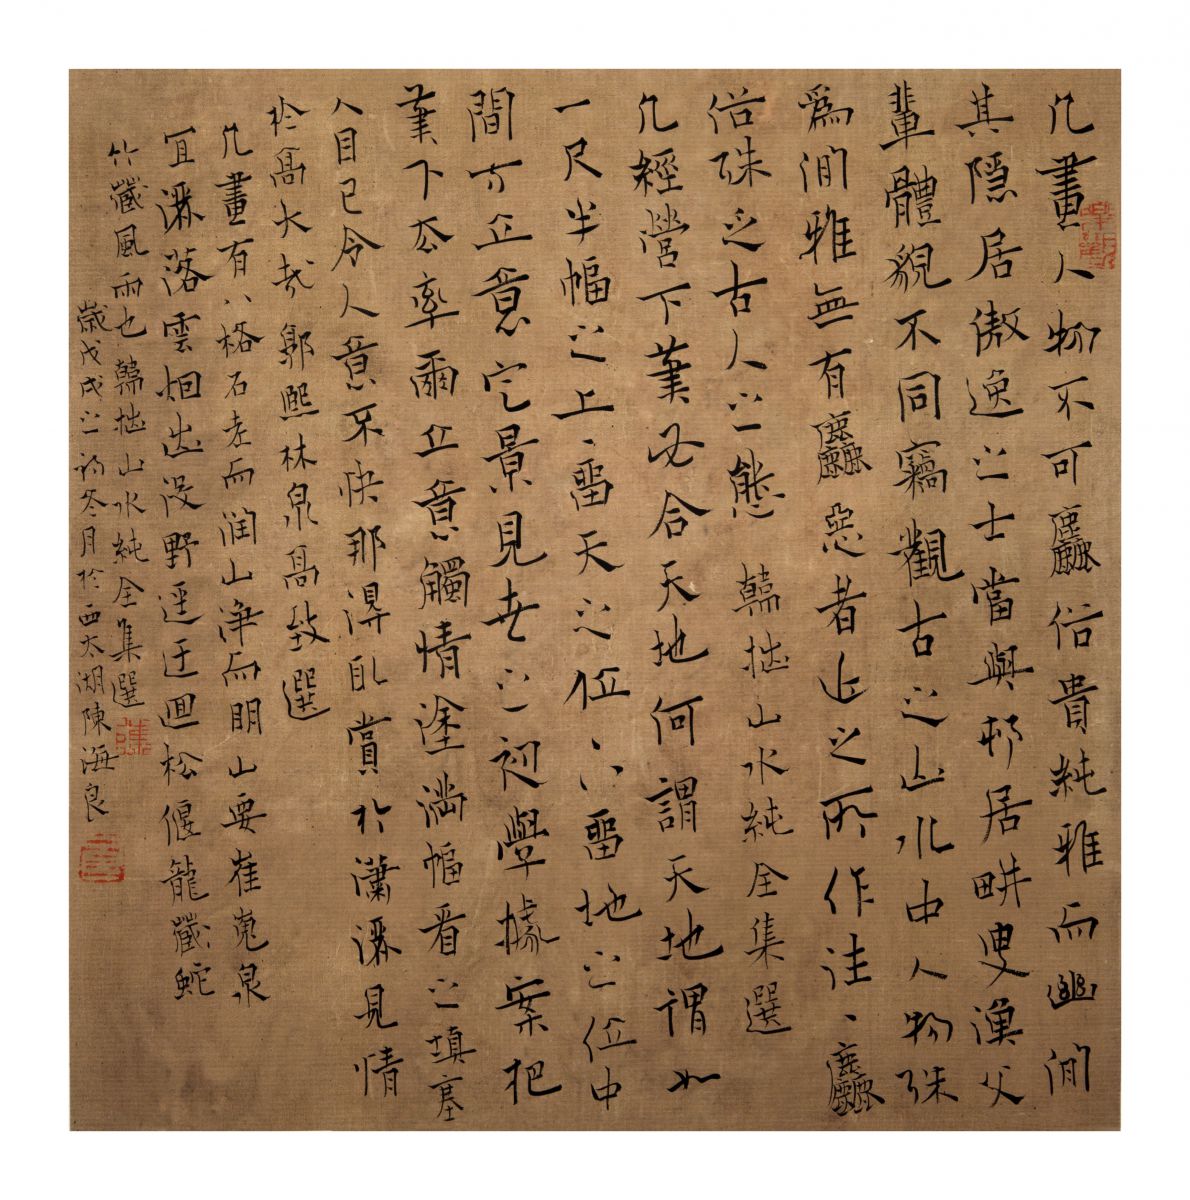 凡畫人物不可麤俗貴純雅而幽閒
其隱居傲逸之士當與邨居畊叟漁父
輩體貌不同竊觀古之山水中人物殊
爲閒雅無有麤惡者近之所作往〻麤
俗殊乏古人之態　韓拙山水純全集選
凡經營下筆必合天地何謂天地謂如
一尺半幅之上〻畱天之位下畱地之位中
間方立意定景見世之初學據案把
筆下去率爾立意觸情塗滿幅看之填塞
人目已令人意不快那得取賞於瀟灑見情
於高大哉　郭熙林泉高致選
凡畫有八格石老而润山淨而明山要崔嵬泉
宜灑落雲烟出没野逕迂迴松偃龍蛇
竹藏風雨也　韓拙山水純全集選
歲戊戌之初冬月於西太湖陳海良